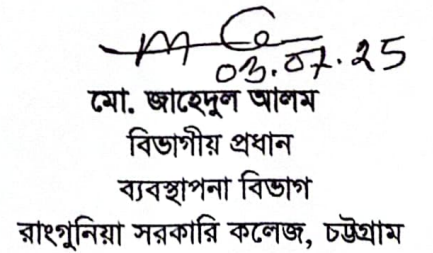 03.07.25
মো. জাহেদুল আলম
বিভাগীয় প্রধান
ব্যবস্থাপনা বিভাগ
রাংগুনিয়া সরকারি কলেজ, চট্টগ্রাম